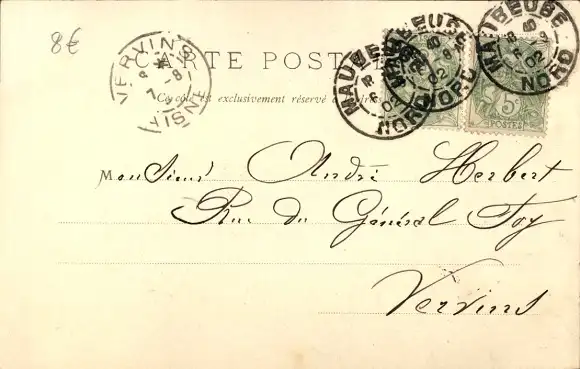 8€
CARTE POSTALE
Ce côté est exclusivement réservé
VERVINS
AISNE
7 -8
MAUBEUGE
NORD
02
MAUBEUGE
NORD
02
MAUBEUGE
NORD
02
5c
POSTES
Monsieur André Herbert
Rue du Général Foy
Vervins